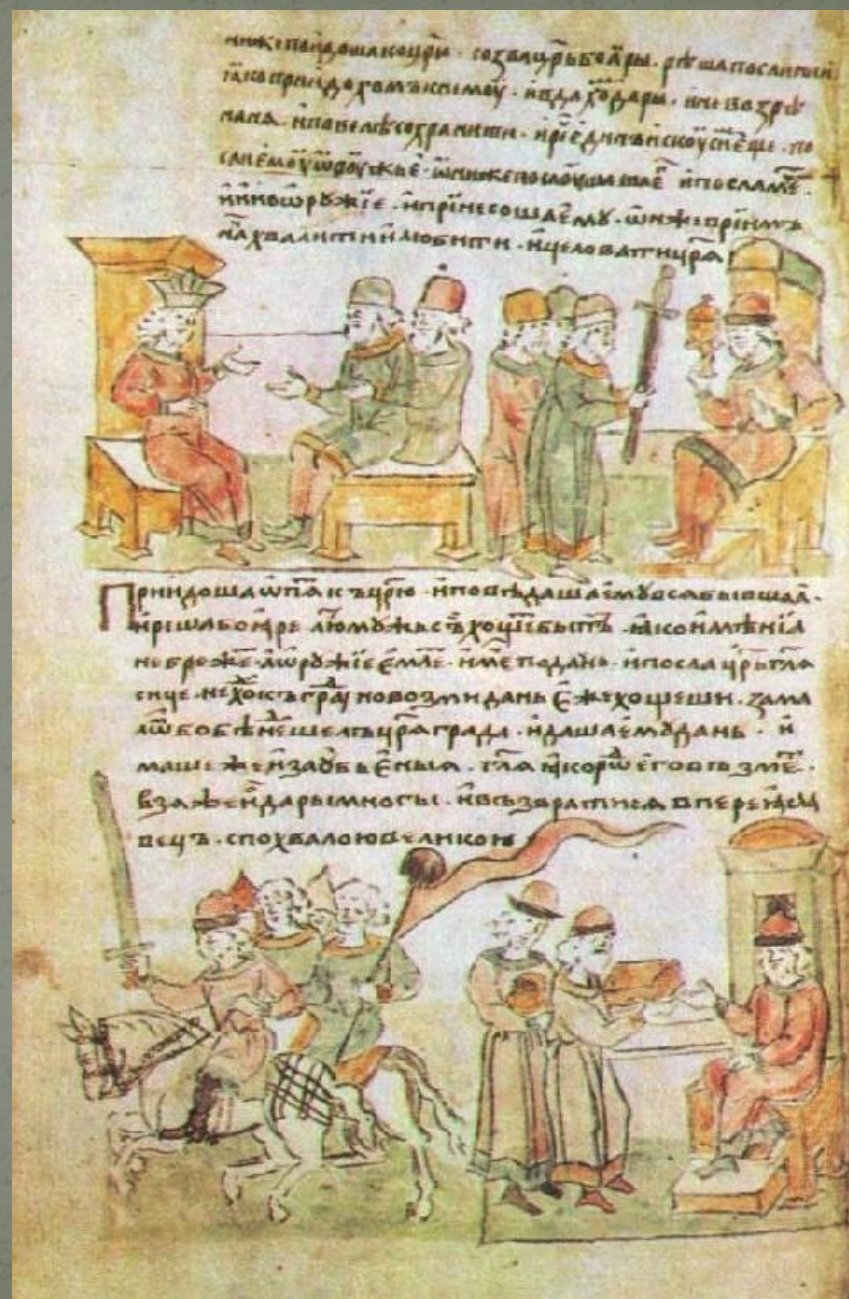 они же поидоша ко црю · созва црь боѧры · рѣша послании
ꙗко придохомъ к нему · и вдахо дары · и не возрѣ
на нѧ · и повелѣ сохранити · и рече единъ искуси еще · по
сли ему ѡружье · они же послушаша и послаша
ѡружие · и принесоша ему · ѡн же приимъ
нача хвалити и любити · и целовати црѧ
Приидоша ѡпѧ къ црю · и повѣдаша ему всѧ бывшаѧ ·
и рѣша боѧре лю мужь сь хоще быть · ꙗко имѣниꙗ
небреже · а ѡружие емле · име по дань · и посла црь глѧ
сице · не хо къ гра но возми дань еже хощеши · za мало
бо бѣ не шелъ црѧграда · и даша ему дань · и
маше же и за убьеныꙗ · глѧ ꙗко ро его възме ·
взѧ же и дары многы · и възвратисѧ в переꙗсла
вець · с похвалою великою